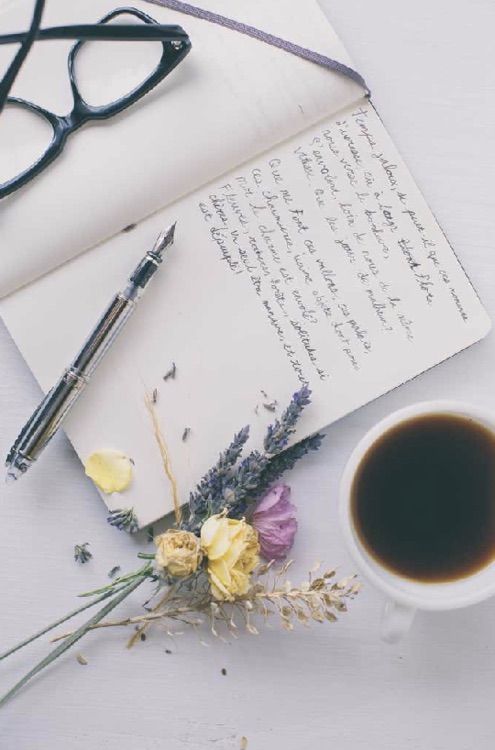 Temps jaloux, se peut il que ces moments
d'ivresse, où à longs
nous verse le bonheur,
s'envolent loin de nous de la même
vitesse que les jours de malheur?
Que me font ces vallons, ces palais,
ces chaumières, vains objets dont pour
moi le charme est envolé?
Fleuves, rochers, forêts, solitudes, si
chères, un seul être vous manque, et tout
est dépeuplé!